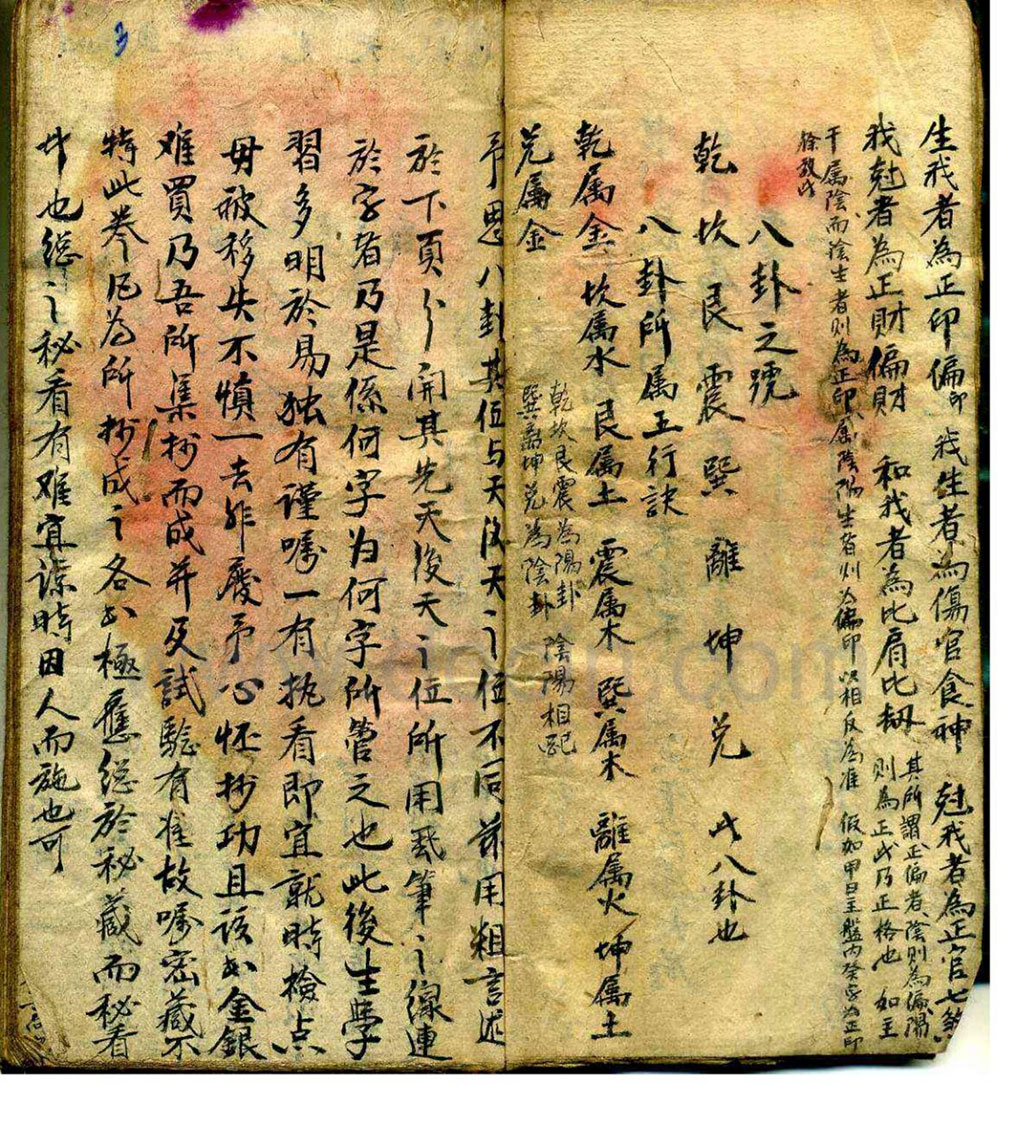 生我者為正印偏印 我生者為傷官食神 尅我者為正官七煞
我尅者為正財偏財 和我者為比肩比刼 其所謂正偏者陰則為偏陽
則為正此乃正格也 如主
干属陰而陰生者則為正印 属陰陽生者則為偏印 以相反為准 假如甲日主盤内癸字為正印
餘放此
八卦之號
乾 坎 艮 震 巽 離 坤 兑 此八卦也
八卦所属五行訣
乾属金 坎属水 艮属土 震属木 巽属木 離属火 坤属土
兑属金
乾坎艮震為陽卦
巽離坤兑為陰卦 陰陽相配
予思八卦其位与天後天之位不同茲用粗言述
於下頁分開其先天後天之位所用武筆之線連
於字者乃是係何字为何字所管之也此後生學
習多明於易独有謹嘱一有执看即宜就時檢点
毋被移失不慎一去非廢予心怪抄功且该出金銀
难買乃吾所集抄而成并反試驗有准故嘱宓藏不
特此卷凡為所抄成之各出極應总於秘藏而秘看
中也总之秘看有难宜諒時因人而施也可